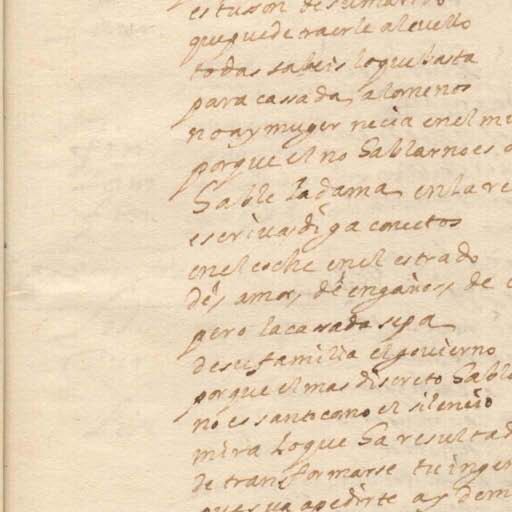 es tusson de su marido
que puede traerle al cuello
todas sabeis lo que basta
para casada, a lo menos
no ay muger necia en el m
porque el no hablar no es d
hable la dama en la re
escriva diga concetos
en el coche en el estrado
de amor, de engaños, de c
pero la casada sepa
de su familia el govierno
porque el mas discreto habl
no es santo como el silencio
mira lo que ha resultad
de transformarse tu ingen
pues va a pedirte ay dem